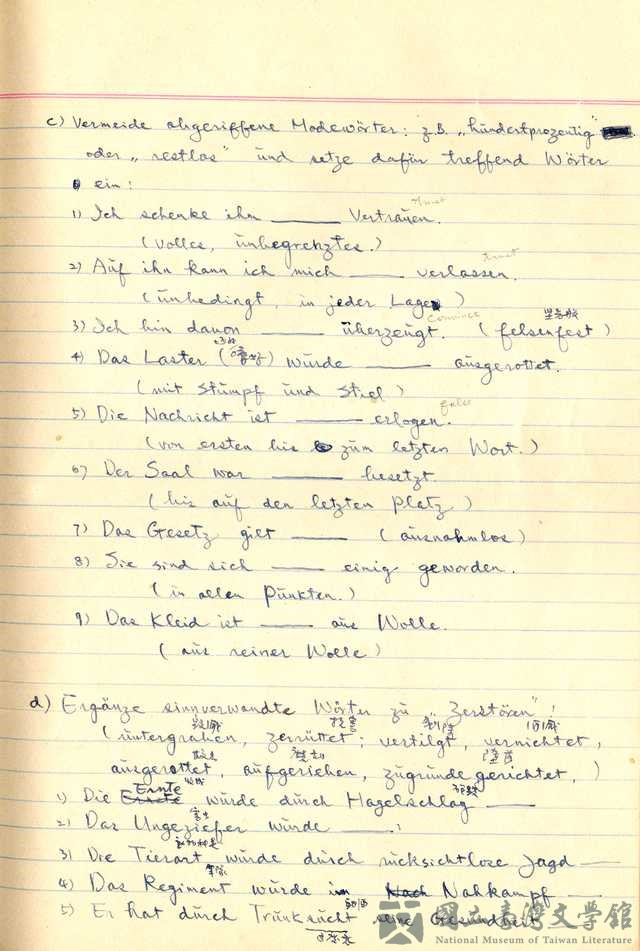 c) Vermeide abgeriffene Modewörter: z.B. „hundertprozentig"
oder „restlos" und setze dafür treffend Wörter
ein:
1) Ich schenke ihm ______ Vertrauen.
(volles, unbegrenztes.)
trust
2) Auf ihn kann ich mich ______ verlassen.
(unbedingt, in jeder Lage)
Convince
3) Ich bin davon ______ überzeugt. (felsenfest)
4) Das Laster (嗜好) wurde ______ ausgerottet.
(mit Stumpf und Stiel)
false
5) Die Nachricht ist ______ erlogen.
(von ersten bis zum letzten Wort.)
6) Der Saal war ______ besetzt.
(bis auf den letzten Platz)
7) Das Gesetz gilt ______ (ausnahmlos)
8) Sie sind sich ______ einig geworden.
(in allen Punkten.)
9) Das Kleid ist ______ aus Wolle.
(aus reiner Wolle)
d) Ergänze sinnverwandte Wörter zu „Zerstören"!
(untergraben, zerrüttet; vertilgt, vernichtet,
ausgerottet, aufgerieben, zugrunde gerichtet,)
Ernte
1) Die Ernte wurde durch Hagelschlag ______
2) Das Ungeziefer wurde ______.
3) Die Tierart wurde durch rücksichtlose Jagd ______
4) Das Regiment wurde im Nahkampf ______
5) Er hat durch Trunksucht seine Gesundheit
國立臺灣文學館
National Museum of Taiwan Literature